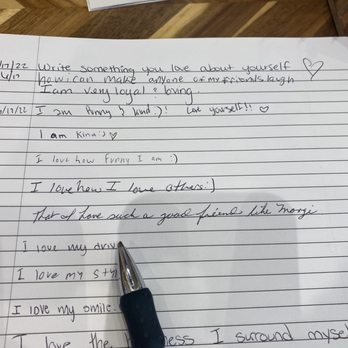 Write something you love about yourself
how i can make anyone of my friends laugh
I am very loyal & loving
I am funny & kind :)! Love yourself!!
I am kind :)
I love how funny I am :)
I love how I love others :)
That I have such a good friend like Margi
I love my
I love my
I love my smile.
I love the I surround